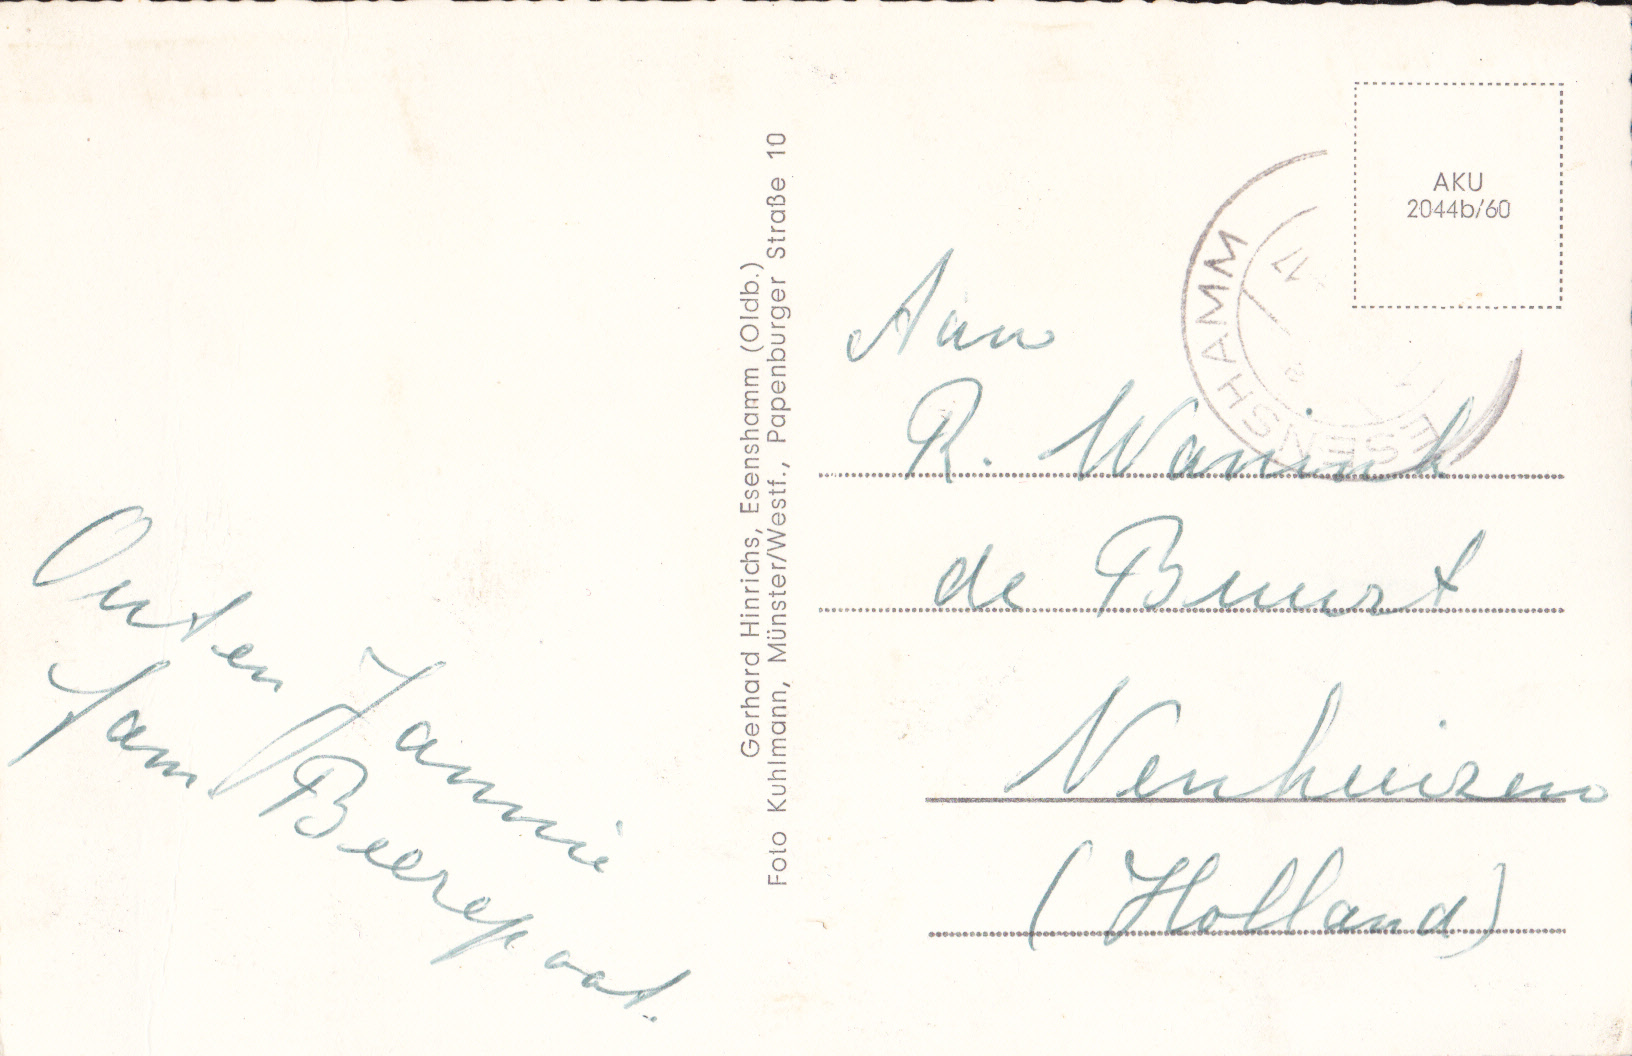 Onten Jannie
Jan Beerepoot.
Gerhard Hinrichs, Esenshamm (Oldb.)
Foto Kuhlmann, Münster/Westf., Papenburger Straße 10
AKU
2044b/60
ESENSHAMM
17
Aan
R. Wanink
de Buurt
Venhuizen
(Holland)